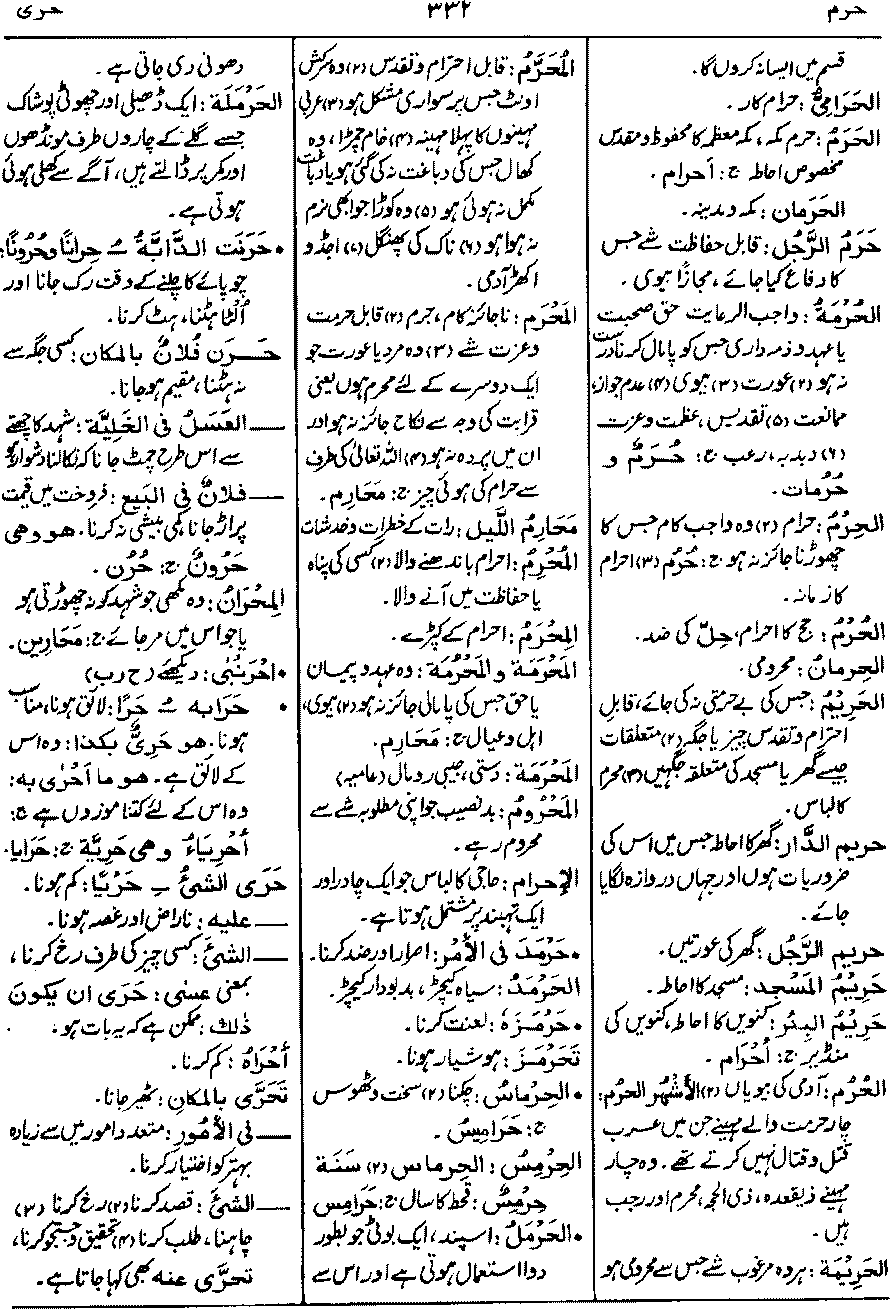 حرم ۳۳۲ حری
قسم میں ایسا نہ کروں گا۔
الحَرَامِیُّ: حرام کار۔
الحَرَمُ: حرم مکہ، مکہ معظمہ کا محفوظ و مقدس
مخصوص احاطہ ج: أحرام۔
الحَرَمان: مکہ و مدینہ۔
حَرَمُ الرَّجُل: قابل حفاظت شے جس
کا دفاع کیا جائے، مجازاً بیوی۔
الحُرْمَةُ: واجب الرعایت حق صحبت
یا عہد و ذمہ داری جس کو پامال کرنا درست
نہ ہو (۲) عورت (۳) بیوی (۴) عدم جواز،
ممانعت (۵) تقدیس، عظمت و عزت
(۶) دبدبہ، رعب ج: حُرَمٌ و
حُرُمات۔
الحِرْمُ: حرام (۲) وہ واجب کام جس کا
چھوڑنا جائز نہ ہو ج: حُرُم (۳) احرام
کا زمانہ۔
الحُرْمُ: حج کا احرام، حِلّ کی ضد۔
الحِرمانُ: محرومی۔
الحَرِیْمُ: جس کی بے حرمتی نہ کی جائے، قابل
احترام و تقدس چیز یا جگہ (۲) متعلقات
جیسے گھر یا مسجد کی متعلقہ جگہیں (۳) محرم
کا لباس۔
حریم الدَّار: گھر کا احاطہ جس میں اس کی
ضروریات ہوں اور جہاں دروازہ لگایا
جائے۔
حریم الرَّجُل: گھر کی عورتیں۔
حَرِیْمُ المَسْجِد: مسجد کا احاطہ۔
حَرِیْمُ البِئر: کنویں کا احاطہ، کنویں کی
منڈیر ج: أَحْرَام۔
الحُرُم: آدمی کی بیویاں (۲) الأَشْهُر الحرُم:
چار حرمت والے مہینے جن میں عرب
قتل و قتال نہیں کرتے تھے۔ وہ چار
مہینے ذیقعدہ، ذی الحجہ، محرم اور رجب
ہیں۔
الحَرِیْمَة: ہر وہ مرغوب شے جس سے محرومی ہو
المُحَرَّمُ: قابل احترام و تقدس (۲) وہ سرکش
اونٹ جس پر سواری مشکل ہو (۳) عربی
مہینوں کا پہلا مہینہ (۴) خام چمڑا، وہ
کھال جس کی دباغت نہ کی گئی ہو یا دباغت
مکمل نہ ہوئی ہو (۵) وہ کوڑا جو ابھی نرم
نہ ہوا ہو (۶) ناک کی پھنگل (۷) اجڈ و
اکھڑ آدمی۔
المَحْرَم: ناجائز کام، جرم (۲) قابل حرمت
و عزت شے (۳) وہ مرد یا عورت جو
ایک دوسرے کے لئے محرم ہوں یعنی
قرابت کی وجہ سے نکاح جائز نہ ہو اور
ان میں پردہ نہ ہو (۴) اللہ تعالیٰ کی طرف
سے حرام کی ہوئی چیز ج: مَحَارِم۔
مَحَارِمُ اللَّیل: رات کے خطرات و خدشات
المُحْرِمُ: احرام باندھنے والا (۲) کسی کی پناہ
یا حفاظت میں آنے والا۔
المِحْرَمُ: احرام کے کپڑے۔
المَحْرَمَة والمَحْرُمَة: وہ عہد و پیمان
یا حق جس کی پامالی جائز نہ ہو (۲) بیوی،
اہل و عیال ج: مَحَارِم۔
المَحْرَمَة: دستی، جیبی رومال (عامیہ)
المَحْرُومُ: بدنصیب جو اپنی مطلوبہ شے سے
محروم رہے۔
الإحرام: حاجی کا لباس جو ایک چادر اور
ایک تہبند پر مشتمل ہوتا ہے۔
• حَرْمَدَ فی الأَمْر: اصرار اور ضد کرنا۔
الحَرْمَدُ: سیاہ کیچڑ، بدبودار کیچڑ۔
• حَرْمَزَہٗ: لعنت کرنا۔
تَحَرْمَزَ: ہوشیار ہونا۔
• الحِرْماسُ: چکنا (۲) سخت و ٹھوس
ج: حَرَامِیْسُ۔
الحِرْمِسُ: الحِرماس (۲) سَنَة
حِرْمِسٌ: قحط کا سال ج: حَرَامِس
• الحَرْمَلُ: اسپند، ایک بوٹی جو بطور
دوا استعمال ہوتی ہے اور اس سے
دھونی دی جاتی ہے۔
الحَرْمَلَة: ایک ڈھیلی اور چھوٹی پوشاک
جسے گلے کے چاروں طرف مونڈھوں
اور کمر پر ڈالتے ہیں، آگے سے کھلی ہوئی
ہوتی ہے۔
• حَرَنَت الدَّابَّةُ ُ حِرانًا وحُرُونًا:
چوپائے کا چلنے کے وقت رک جانا اور
اُلٹا ہٹنا، ہٹ کرنا۔
حَرَن فُلانٌ بالمکان: کسی جگہ سے
نہ ہٹنا، مقیم ہو جانا۔
— العَسَلُ فی الخَلِیَّة: شہد کا چھتے
سے اس طرح چمٹ جانا کہ نکالنا دشوار ہو
— فلانٌ فی البَیع: فروخت میں قیمت
پر اڑ جانا، کمی بیشی نہ کرنا۔ هو وهی
حَرُونٌ ج: حُرُن۔
المِحْرَانُ: وہ مکھی جو شہد کو نہ چھوڑتی ہو
یا جو اس میں مر جائے ج: مَحَارِین۔
• اِحْرَنْبٰی: دیکھئے (ح رب)
• حَرَابه ُ حَرًا: لائق ہونا، مناسب
ہونا۔ هو حَرِیٌّ بکذا: وہ اس
کے لائق ہے۔ هو ما أَحْرٰی به:
وہ اس کے لئے کتنا موزوں ہے ج:
أَحْرِیَاءُ وهی حَرِیَّة ج: حَرَایا۔
حَرَی الشیُٔ ِ حَرْیًا: کم ہونا۔
— علیه: ناراض اور غصہ ہونا۔
— الشیَٔ: کسی چیز کی طرف رخ کرنا،
بمعنی عسٰی: حَرَی ان یکونَ
ذٰلك: ممکن ہے کہ یہ بات ہو۔
أَحْرَاہُ: کم کرنا۔
تَحَرَّی بالمکان: ٹھیر جانا۔
— فی الأُمُور: متعدد امور میں سے زیادہ
بہتر کو اختیار کرنا۔
— الشیَٔ: قصد کرنا (۲) رخ کرنا (۳)
چاہنا، طلب کرنا (۴) تحقیق و جستجو کرنا،
تحرَّی عنه بھی کہا جاتا ہے۔